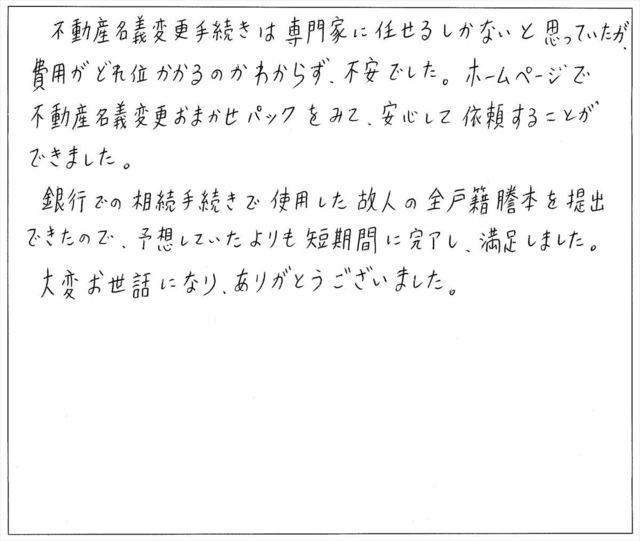 不動産名義変更手続きは専門家に任せるしかないと思っていたが、
費用がどれ位かかるのかわからず、不安でした。ホームページで
不動産名義変更おまかせパックをみて、安心して依頼することが
できました。
銀行での相続手続きで使用した故人の全戸籍謄本を提出
できたので、予想していたよりも短期間に完了し、満足しました。
大変お世話になり、ありがとうございました。